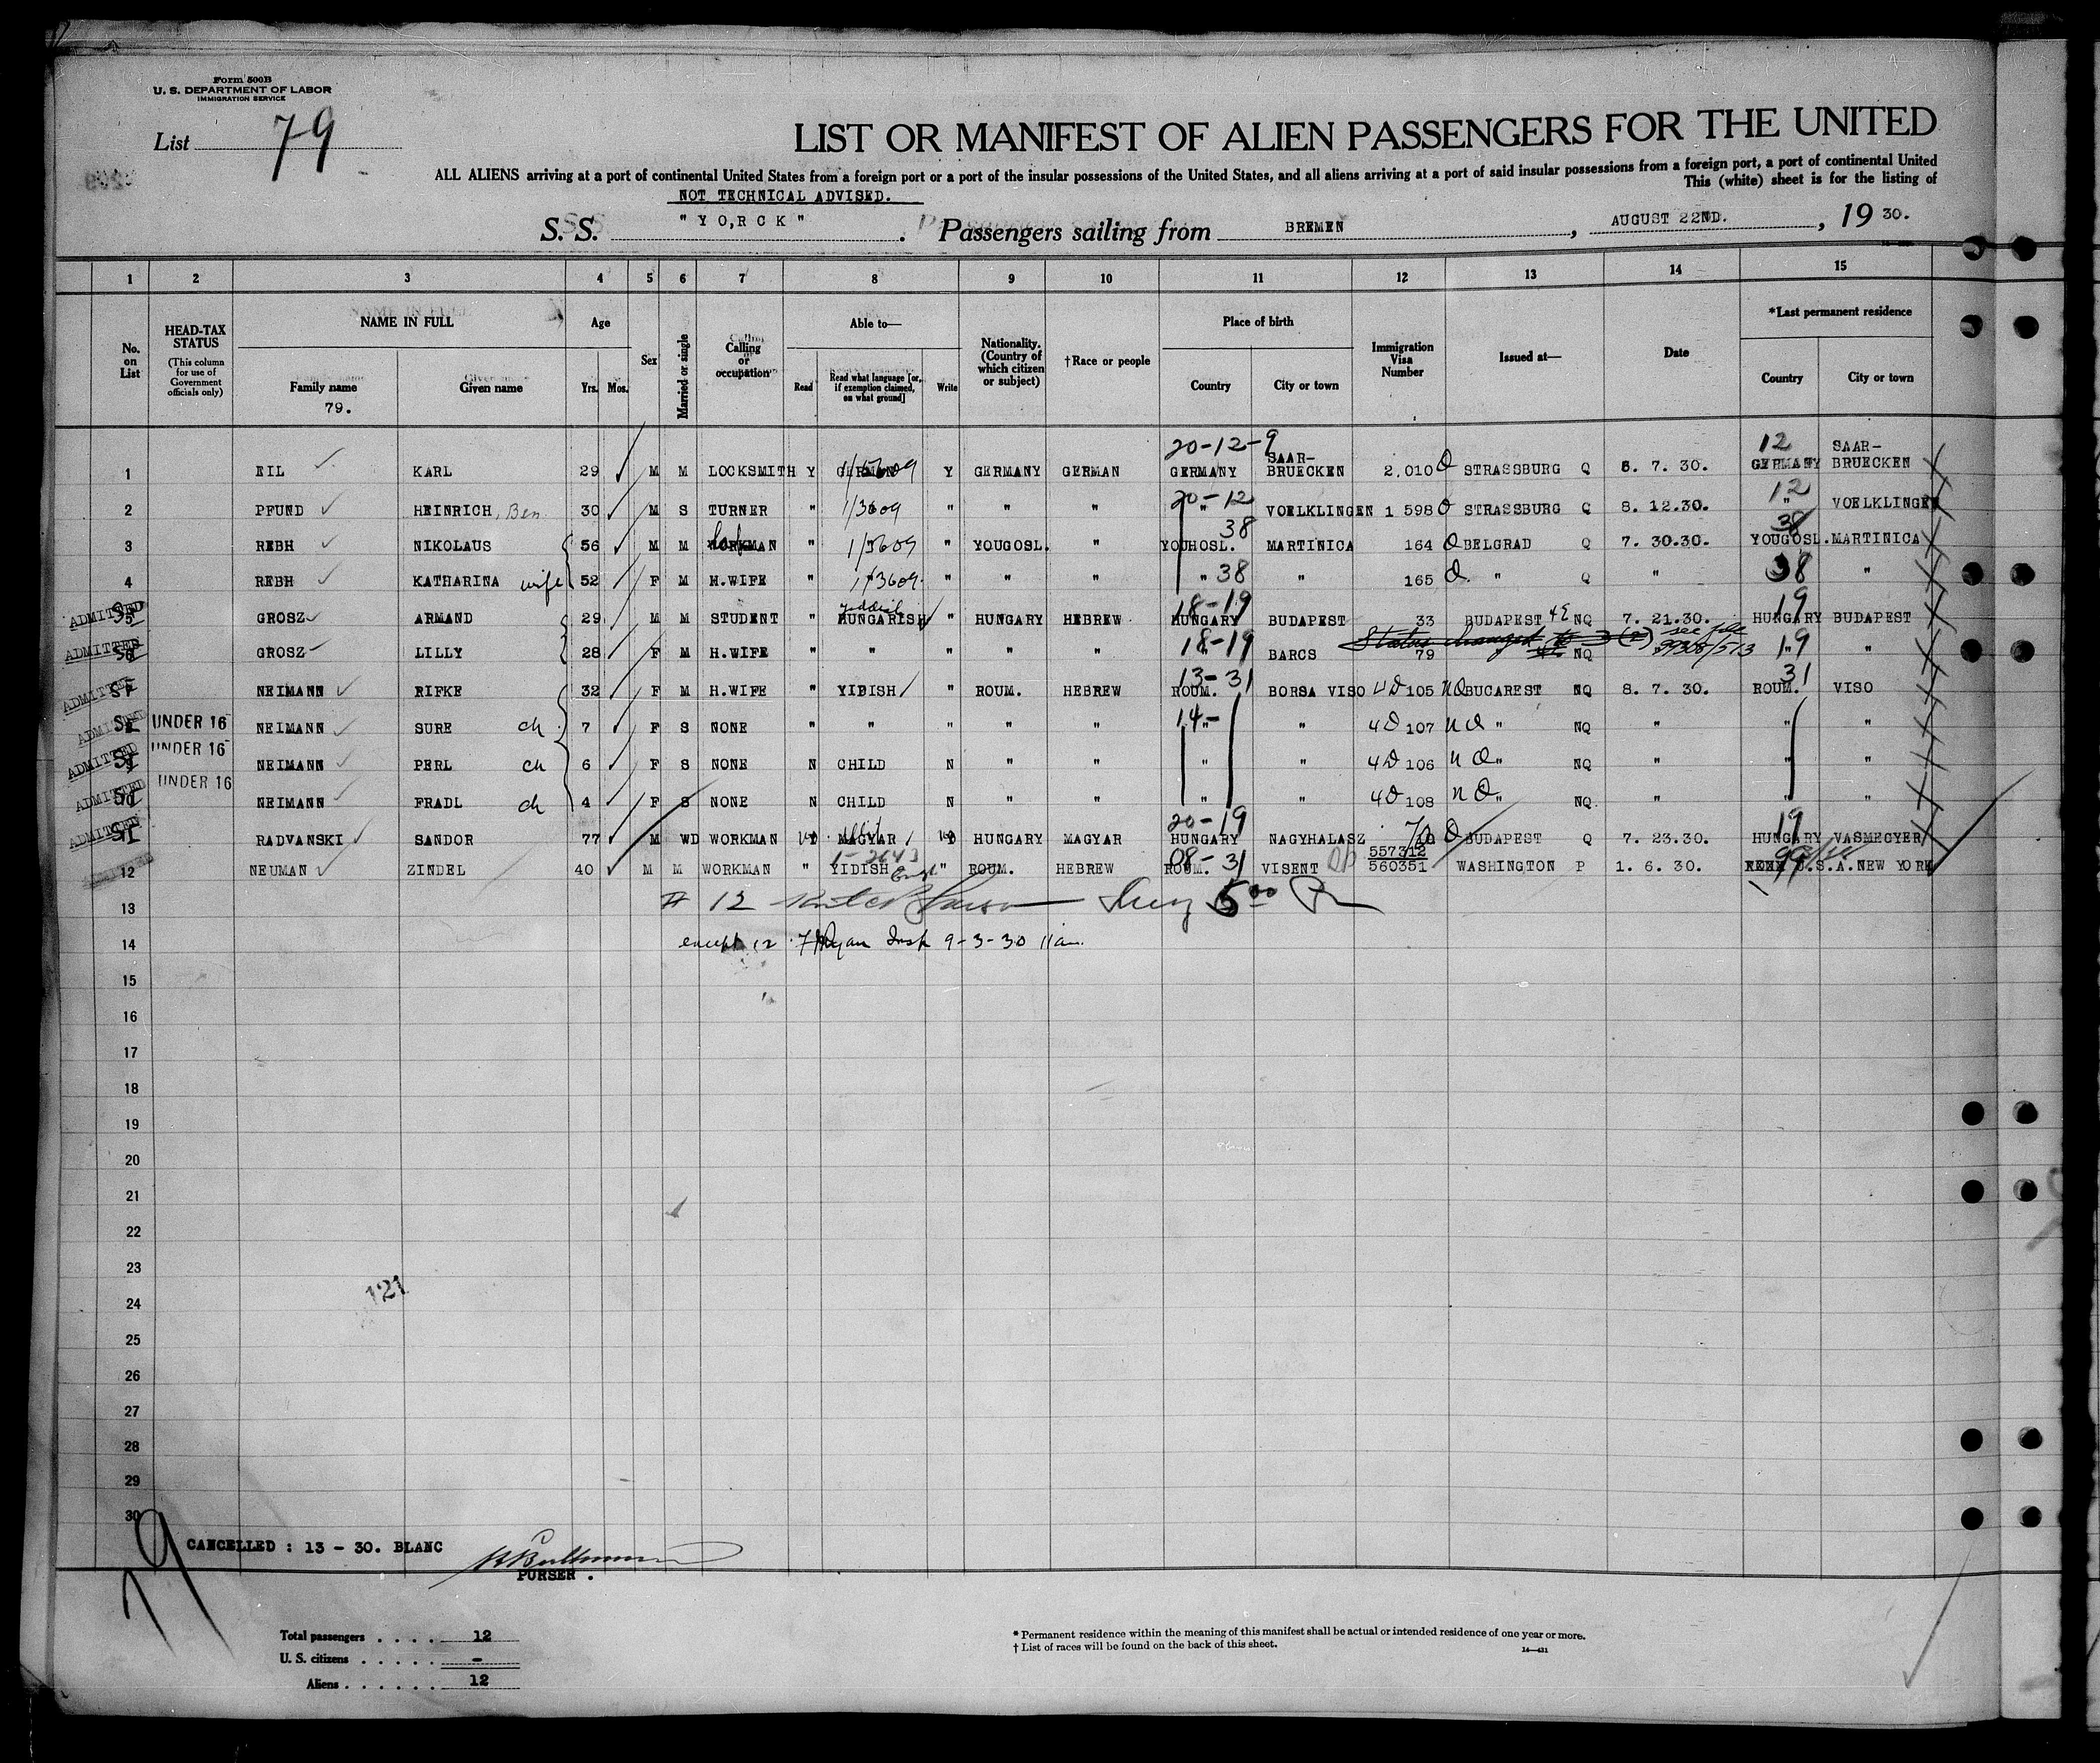 Form 500B
U. S. DEPARTMENT OF LABOR
IMMIGRATION SERVICE
List 79
LIST OR MANIFEST OF ALIEN PASSENGERS FOR THE UNITED
ALL ALIENS arriving at a port of continental United States from a foreign port or a port of the insular possessions of the United States, and all aliens arriving at a port of said insular possessions from a foreign port, a port of continental United
This (white) sheet is for the listing of
NOT TECHNICAL ADVISED.
S. S. " YO,RCK " . Passengers sailing from BREMEN , AUGUST 22ND. , 19 30.
1 2 3 4 5 6 7 8 9 10 11 12 13 14 15
No. on List
HEAD-TAX STATUS
(This column for use of Government officials only)
NAME IN FULL
Family name
79.
Given name
Age
Yrs. Mos.
Sex
Married or single
Calling or occupation
Able to—
Read
Read what language [or, if exemption claimed, on what ground]
Write
Nationality. (Country of which citizen or subject)
†Race or people
Place of birth
Country
City or town
Immigration Visa Number
Issued at—
Date
*Last permanent residence
Country
City or town
20-12-9 12
1 EIL KARL 29 M M LOCKSMITH Y GERMAN Y GERMANY GERMAN GERMANY SAAR-BRUECKEN 2.010 STRASSBURG Q 8. 7. 30. GERMANY SAAR-BRUECKEN
20-12 12
2 PFUND HEINRICH, Ben 30 M S TURNER " 1/3609 " " " " VOELKLINGEN 1 598 STRASSBURG Q 8. 12.30. " VOELKLINGEN
38 38
3 REBH NIKOLAUS 56 M M WORKMAN " " " YOUGOSL. " YOUHOSL. MARTINICA 164 BELGRAD Q 7. 30.30. YOUGOSL. MARTINICA
4 REBH KATHARINA wife 52 F M H.WIFE " 1/3609 " " " " 38 " 165 " Q " 38 "
18-19 19
ADMITTED 5 GROSZ ARMAND 29 M M STUDENT " HUNGARISH Yiddish " HUNGARY HEBREW HUNGARY BUDAPEST 33 BUDAPEST 4E NQ 7. 21.30. HUNGARY BUDAPEST
Status changed to 3 (2) see file 99308/513
18-19 19
ADMITTED 6 GROSZ LILLY 28 F M H.WIFE " " " " " " BARCS 79 " NQ " "
13-31 31
ADMITTED 7 NEIMANN RIFKE 32 F M H.WIFE " YIDISH " ROUM. HEBREW ROUM. BORSA VISO 4D 105 NQ BUCAREST NQ 8. 7. 30. ROUM. VISO
14-
ADMITTED 8 UNDER 16 NEIMANN SURE ch 7 F S NONE " " " " " " " 4D 107 NQ " NQ " " "
ADMITTED 9 UNDER 16 NEIMANN PERL ch 6 F S NONE N CHILD N " " " " 4D 106 NQ " NQ " " "
ADMITTED 10 UNDER 16 NEIMANN FRADL ch 4 F S NONE N CHILD N " " " " 4D 108 NQ " NQ " " "
20-19 19
ADMITTED 11 RADVANSKI SANDOR 77 M WD WORKMAN MAGYAR HUNGARY MAGYAR HUNGARY NAGYHALASZ BUDAPEST Q 7. 23.30. HUNGARY VASMEGYER
1-2643 08-31 557312
12 NEUMAN ZINDEL 40 M M WORKMAN " YIDISH Engl " ROUM. HEBREW ROUM. VISENT 560351 WASHINGTON P 1. 6. 30. U.S.A. NEW YORK
13 # 12 5 00
14 except 12 Ryan Insp 9-3-30 11am.
15
16
17
18
19
20
21
22
23
24
25
26
27
28
29
30
121
79
CANCELLED : 13 - 30. BLANC
PURSER .
Total passengers . . . . 12
U. S. citizens . . . . . -
Aliens . . . . . . 12
* Permanent residence within the meaning of this manifest shall be actual or intended residence of one year or more.
† List of races will be found on the back of this sheet.
14—431